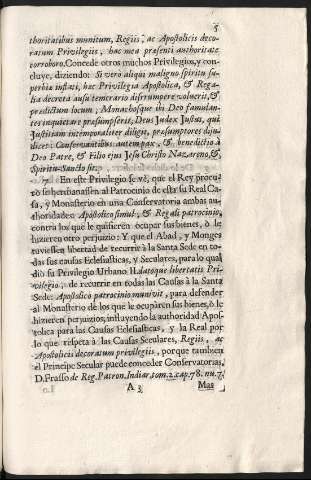 5
thoritatibus munitum, Regijs, ac Apostolicis deco-
ratum Privilegijs, hac mea præsenti authoritate
corroboro. Concede otros muchos Privilegios, y con-
cluye, diziendo: Si verò aliqui maligno spiritu su-
perbiæ inflati, hac Privilegia Apostolica, & Rega-
lia decreta ausu temerario disrrumpere voluerit, &
prædictum locum; Monachosque ibi Deo famulan-
tes inquietare præsumpserit, Deus Judex Justus, qui
Justitiam intemporaliter diligis, præsumptores diju-
dicet: Conservantibus autem pax, & benedictio à
Deo Patre, & Filio ejus Jesu Christo Nazareno, &
Spiritu-Sancto sit.
7 En este Privilegio se vè, que el Rey procu-
rò se hermanassen al Patrocinio de esta su Real Ca-
sa, y Monasterio en una Conservatoria ambas au-
thoridades: Apostolico simul, & Regali patrocinio,
contra los que le quisieren ocupar sus bienes, ò le
huzieren otro perjuizio: Y que el Abad, y Monges
tuviessen libertad de recurrir à la Santa Sede en to-
das sus causas Eclesiasticas, y Seculares, para lo qual
diò su Privilegio Urbano II. datoque libertatis Pri-
vilegio, de recurrir en todas las Causas à la Santa
Sede: Apostolico patrocinio munivit, para defender
al Monasterio de los que le ocuparen sus bienes, ò le
hizieren perjuizios, influyendo la authoridad Apos-
tolica para las Causas Eclesiasticas, y la Real por
lo que respeta à las Causas Seculares, Regijs, ac
Apostolicis decoratum privilegijs, porque tambien
el Principe Secular puede conceder Conservatorias,
D. Frasso de Reg. Patron. Indiar. tom. 2. cap. 78. nu. 7.
A 3 Mas